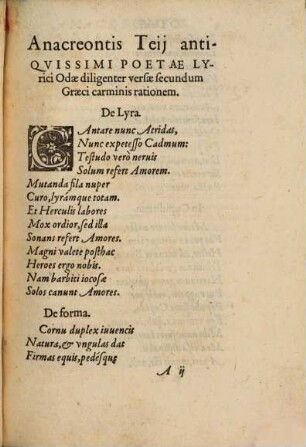 Anacreontis Teij anti-
QVISSIMI POETAE LY-
rici Odæ diligenter versæ secundum
Græci carminis rationem.
De Lyra.
CAntare nunc Atridas,
Nunc expetesso Cadmum:
Testudo vero neruis
Solum refert Amorem.
Mutanda fila nuper
Curo, lyrámque totam.
Et Herculis labores
Mox ordior, sed illa
Sonans refert Amores.
Magni valete posthac
Heroes ergo nobis.
Nam barbiti iocosæ
Solos canunt Amores.
De forma.
Cornu duplex iuuencis
Natura, & vngulas dat
Firmas equis, pedésque
A ij